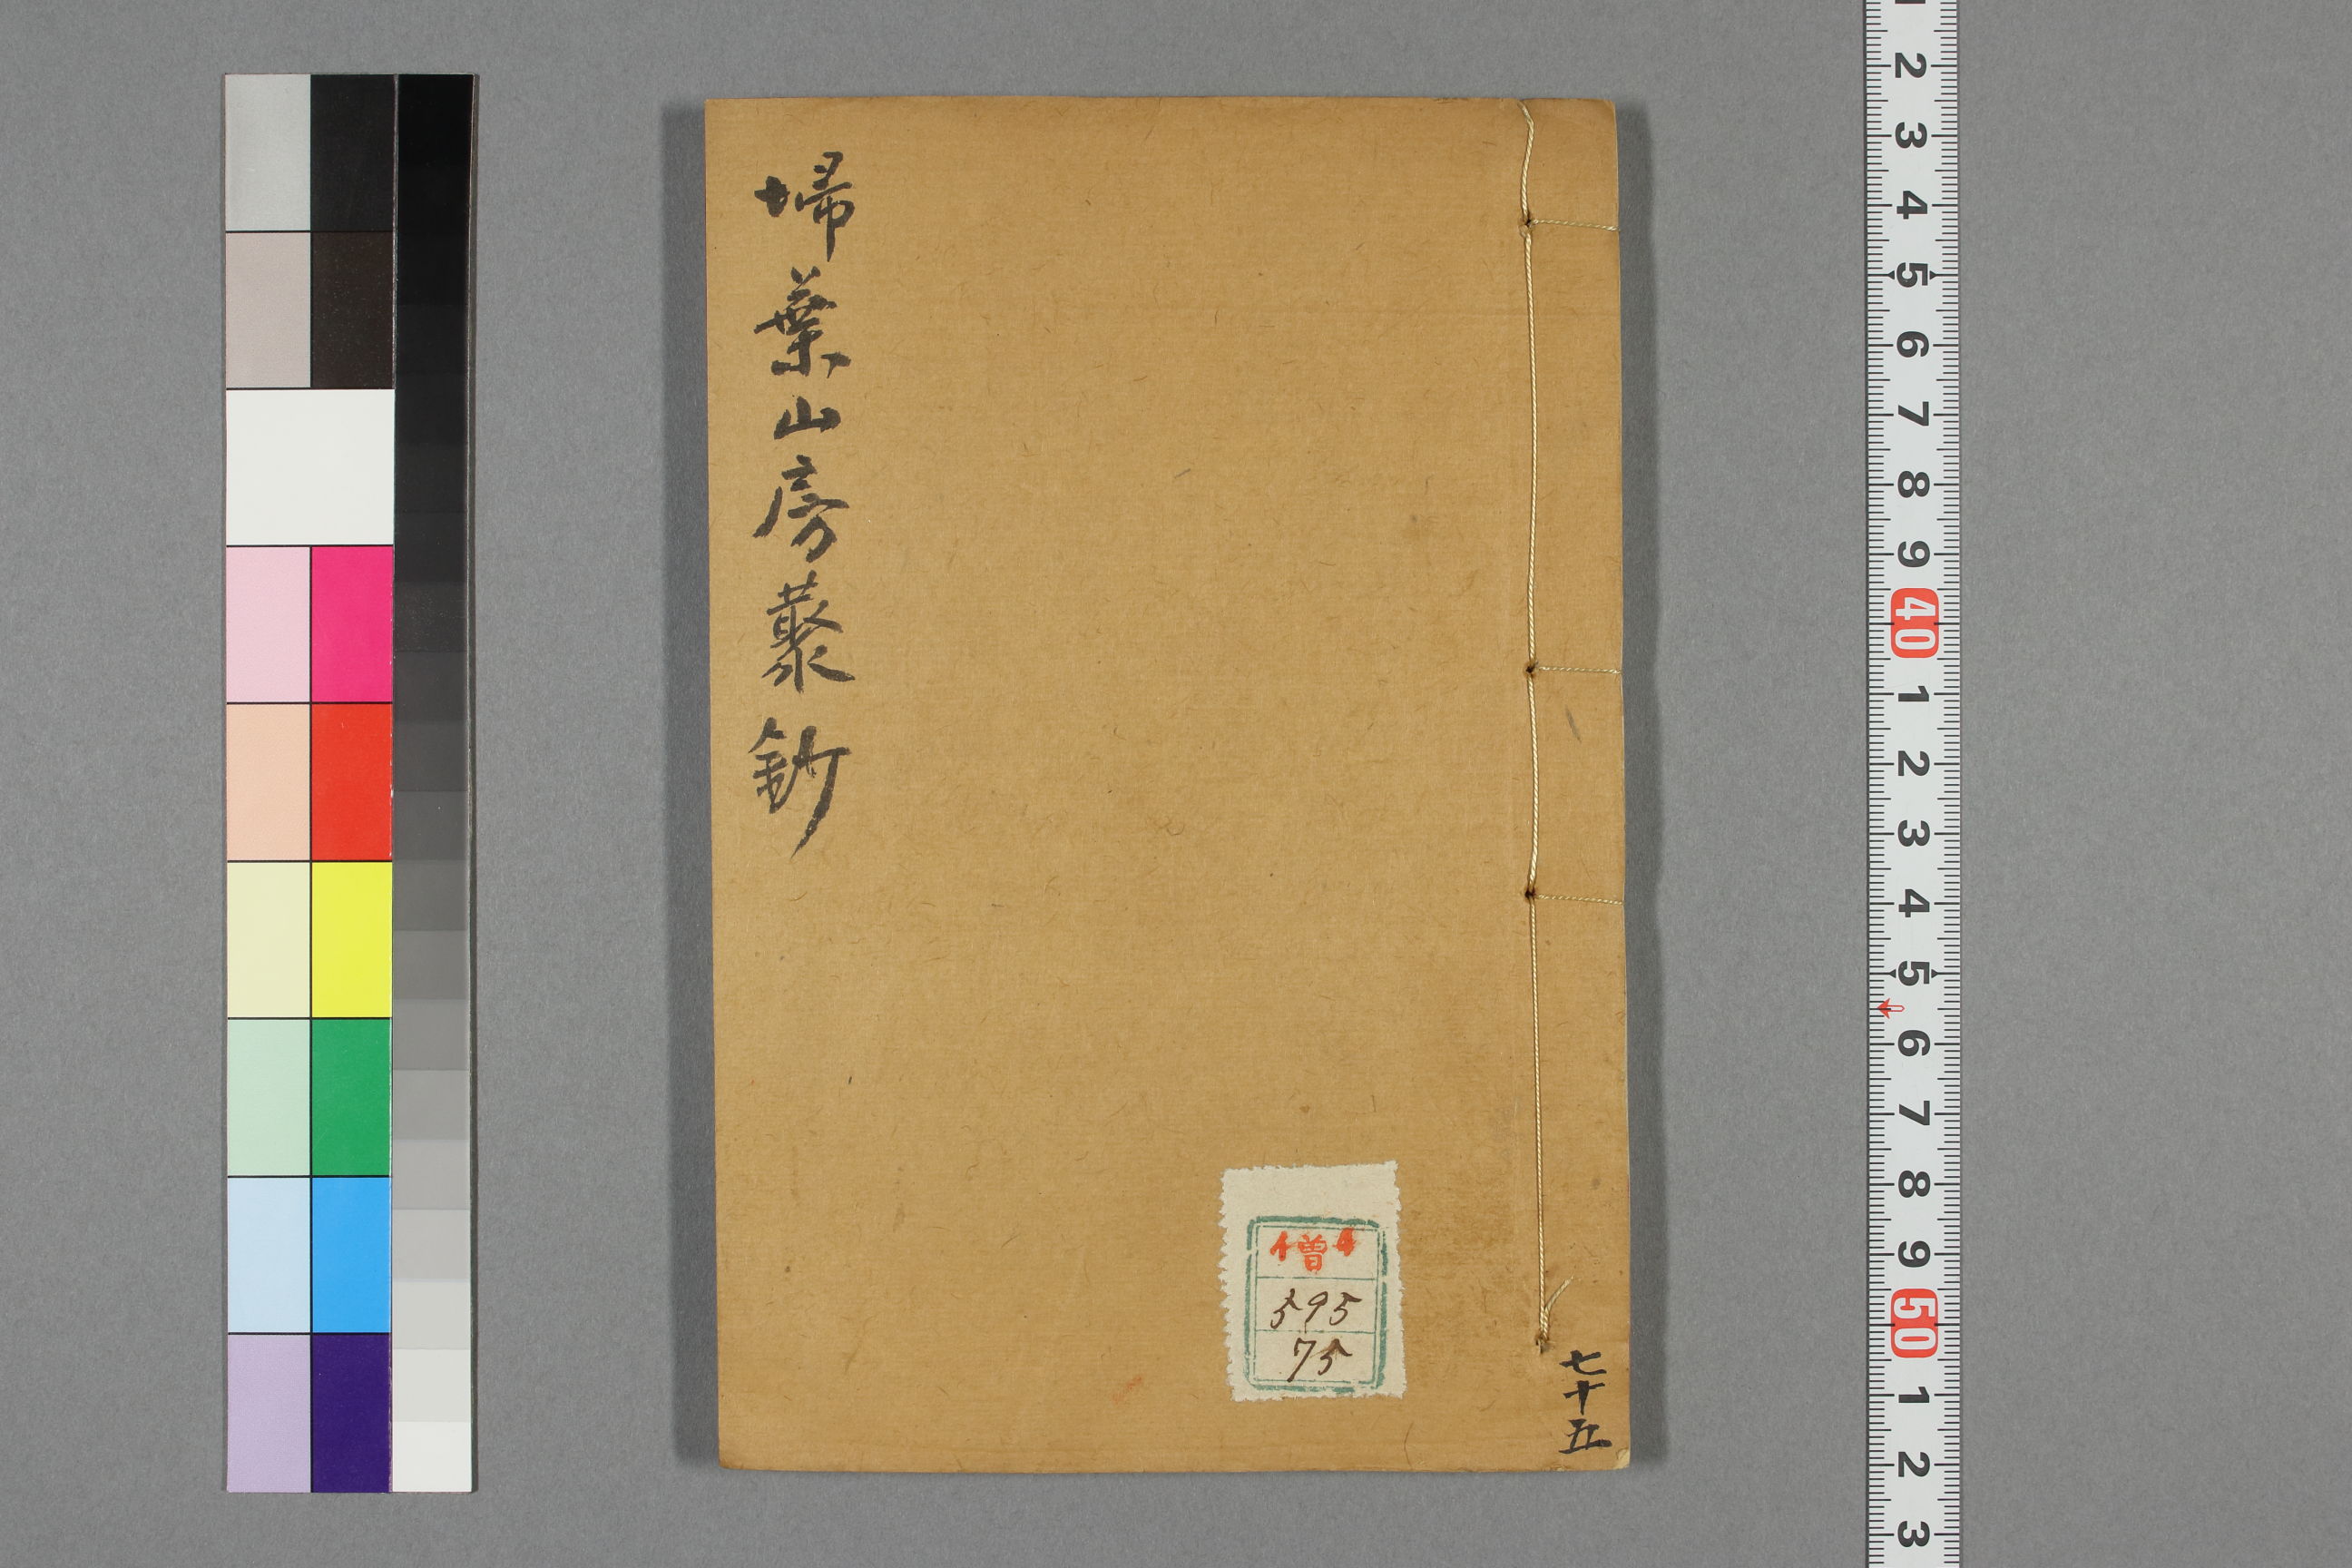 埽葉山房叢鈔
僧4
595
75
七十五
2
3
4
5
6
7
8
9
40
1
2
3
4
5
6
7
8
9
50
1
2
3